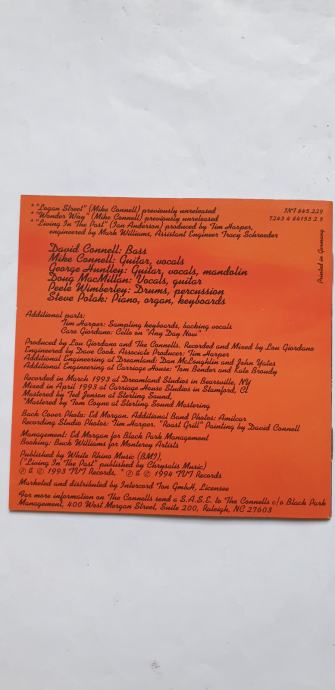 * "Logan Street" (Mike Connell) previously unreleased
* "Wonder Way" (Mike Connell) previously unreleased
* "Living In The Past" (Ian Anderson) produced by Tim Harper,
engineered by Mark Williams, Assistant Engineer Tracy Schroeder
INT 845.229
7243 4 84155 2 5
Printed in Germany
David Connell: Bass
Mike Connell: Guitar, vocals
George Huntley: Guitar, vocals, mandolin
Doug MacMillan: Vocals, guitar
Peele Wimberley: Drums, percussion
Steve Potak: Piano, organ, keyboards
Additional parts:
Tim Harper: Sampling keyboards, backing vocals
Caro Giordano: Cello on "Any Day Now"
Produced by Lou Giordano and The Connells. Recorded and Mixed by Lou Giordano
Engineered by Dave Cook. Associate Producer: Tim Harper
Additional Engineering at Dreamland: Dan McLoughlin and John Yates
Additional Engineering at Carriage House: Tom Bender and Kate Broudy
Recorded in March 1993 at Dreamland Studios in Bearsville, NY
Mixed in April 1993 at Carriage House Studios in Stamford, CT
Mastered by Ted Jensen at Sterling Sound,
*Mastered by Tom Coyne at Sterling Sound Mastering
Back Cover Photo: Ed Morgan. Additional Band Photos: Amilcar
Recording Studio Photos: Tim Harper. "Roast Grill" Painting by David Connell
Management: Ed Morgan for Black Park Management
Booking: Buck Williams for Monterey Artists
Published by White Rhino Music (BMI).
("Living In The Past" published by Chrysalis Music)
℗ © 1993 TVT Records, *℗ © 1994 TVT Records
Marketed and distributed by Intercord Ton GmbH, Licensee
For more information on The Connells send a S.A.S.E. to The Connells c/o Black Park
Management, 400 West Morgan Street, Suite 200, Raleigh, NC 27603